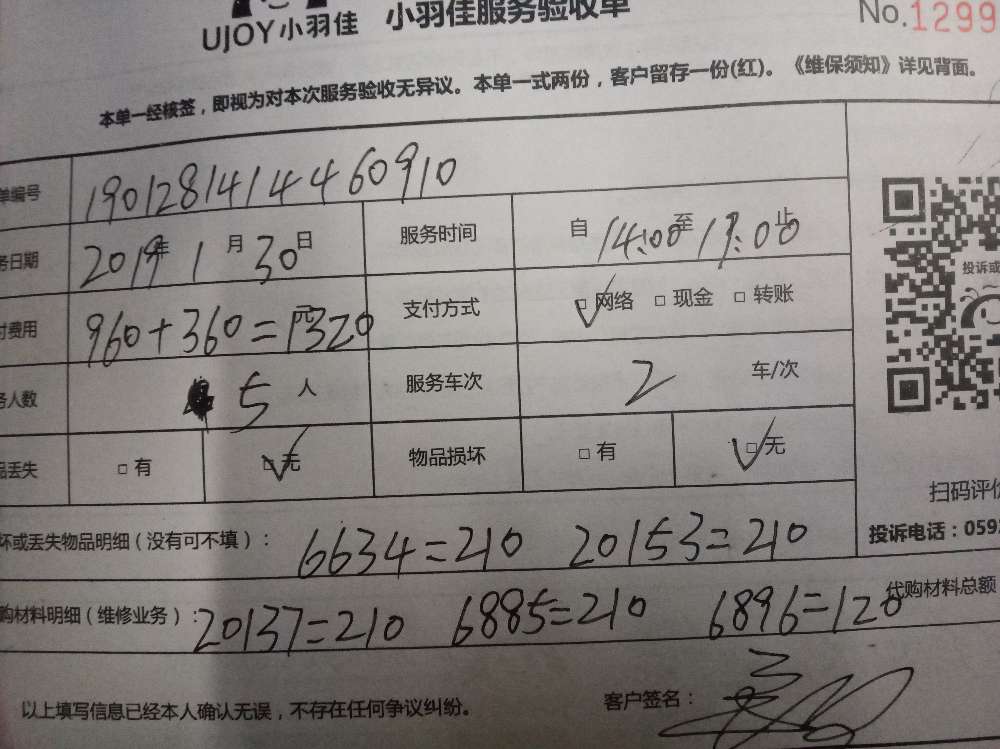 UJOY小羽佳 小羽佳服务验收单 No.1299
本单一经核签，即视为对本次服务验收无异议。本单一式两份，客户留存一份(红)。《维保须知》详见背面。
单编号 1901281414460910
务日期 2019年1月30日 服务时间 自14:00至17:00止
付费用 960+360=1320 支付方式 □网络 □现金 □转账
务人数 5人 服务车次 2 车/次
品丢失 □有 □无 物品损坏 □有 □无
投诉或
扫码评价
坏或丢失物品明细（没有可不填）： 6634=210 20153=210
投诉电话：059
购材料明细（维修业务）： 20137=210 6885=210 6896=120 代购材料总额
以上填写信息已经本人确认无误，不存在任何争议纠纷。 客户签名：